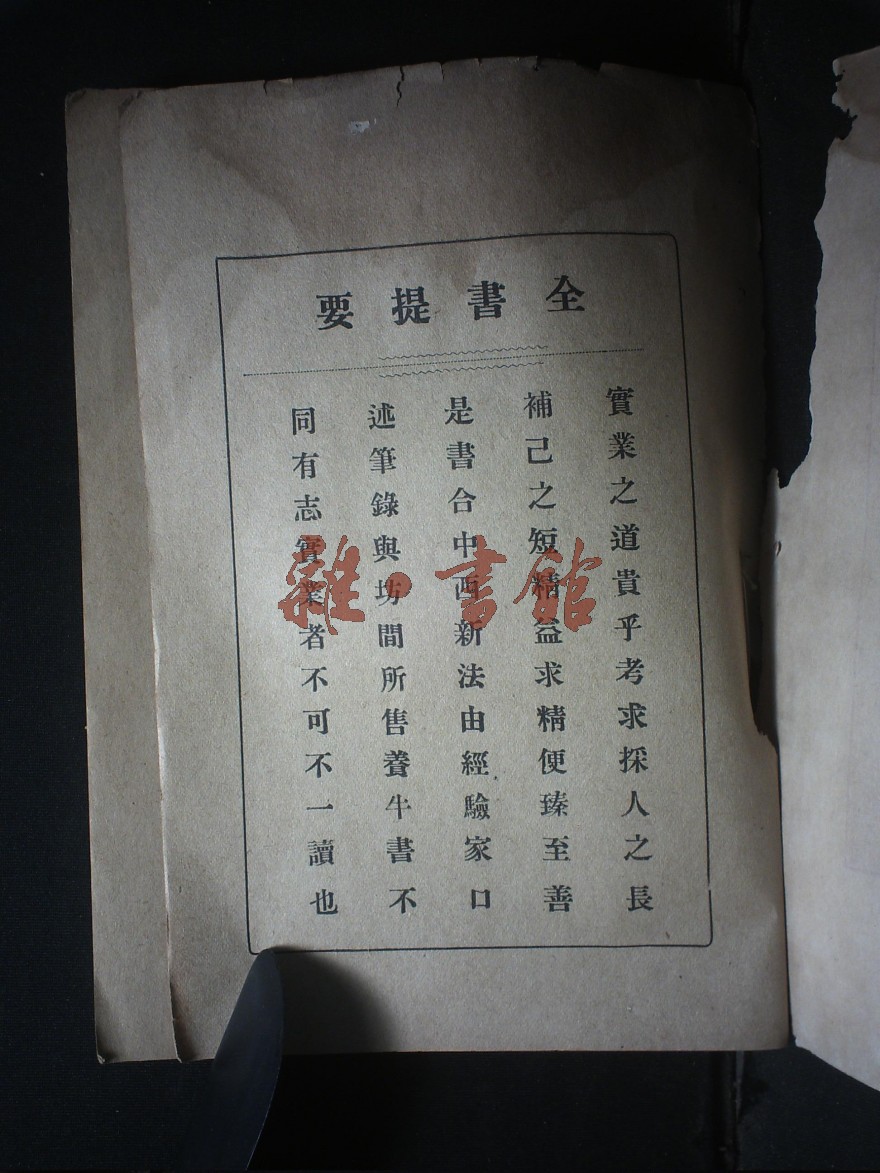 全書提要
實業之道貴乎考求探人之長
補己之短精益求精便臻至善
是書合中西新法由經驗家口
述筆錄與坊間所售養牛書不
同有志實業者不可不一讀也
雜·書館